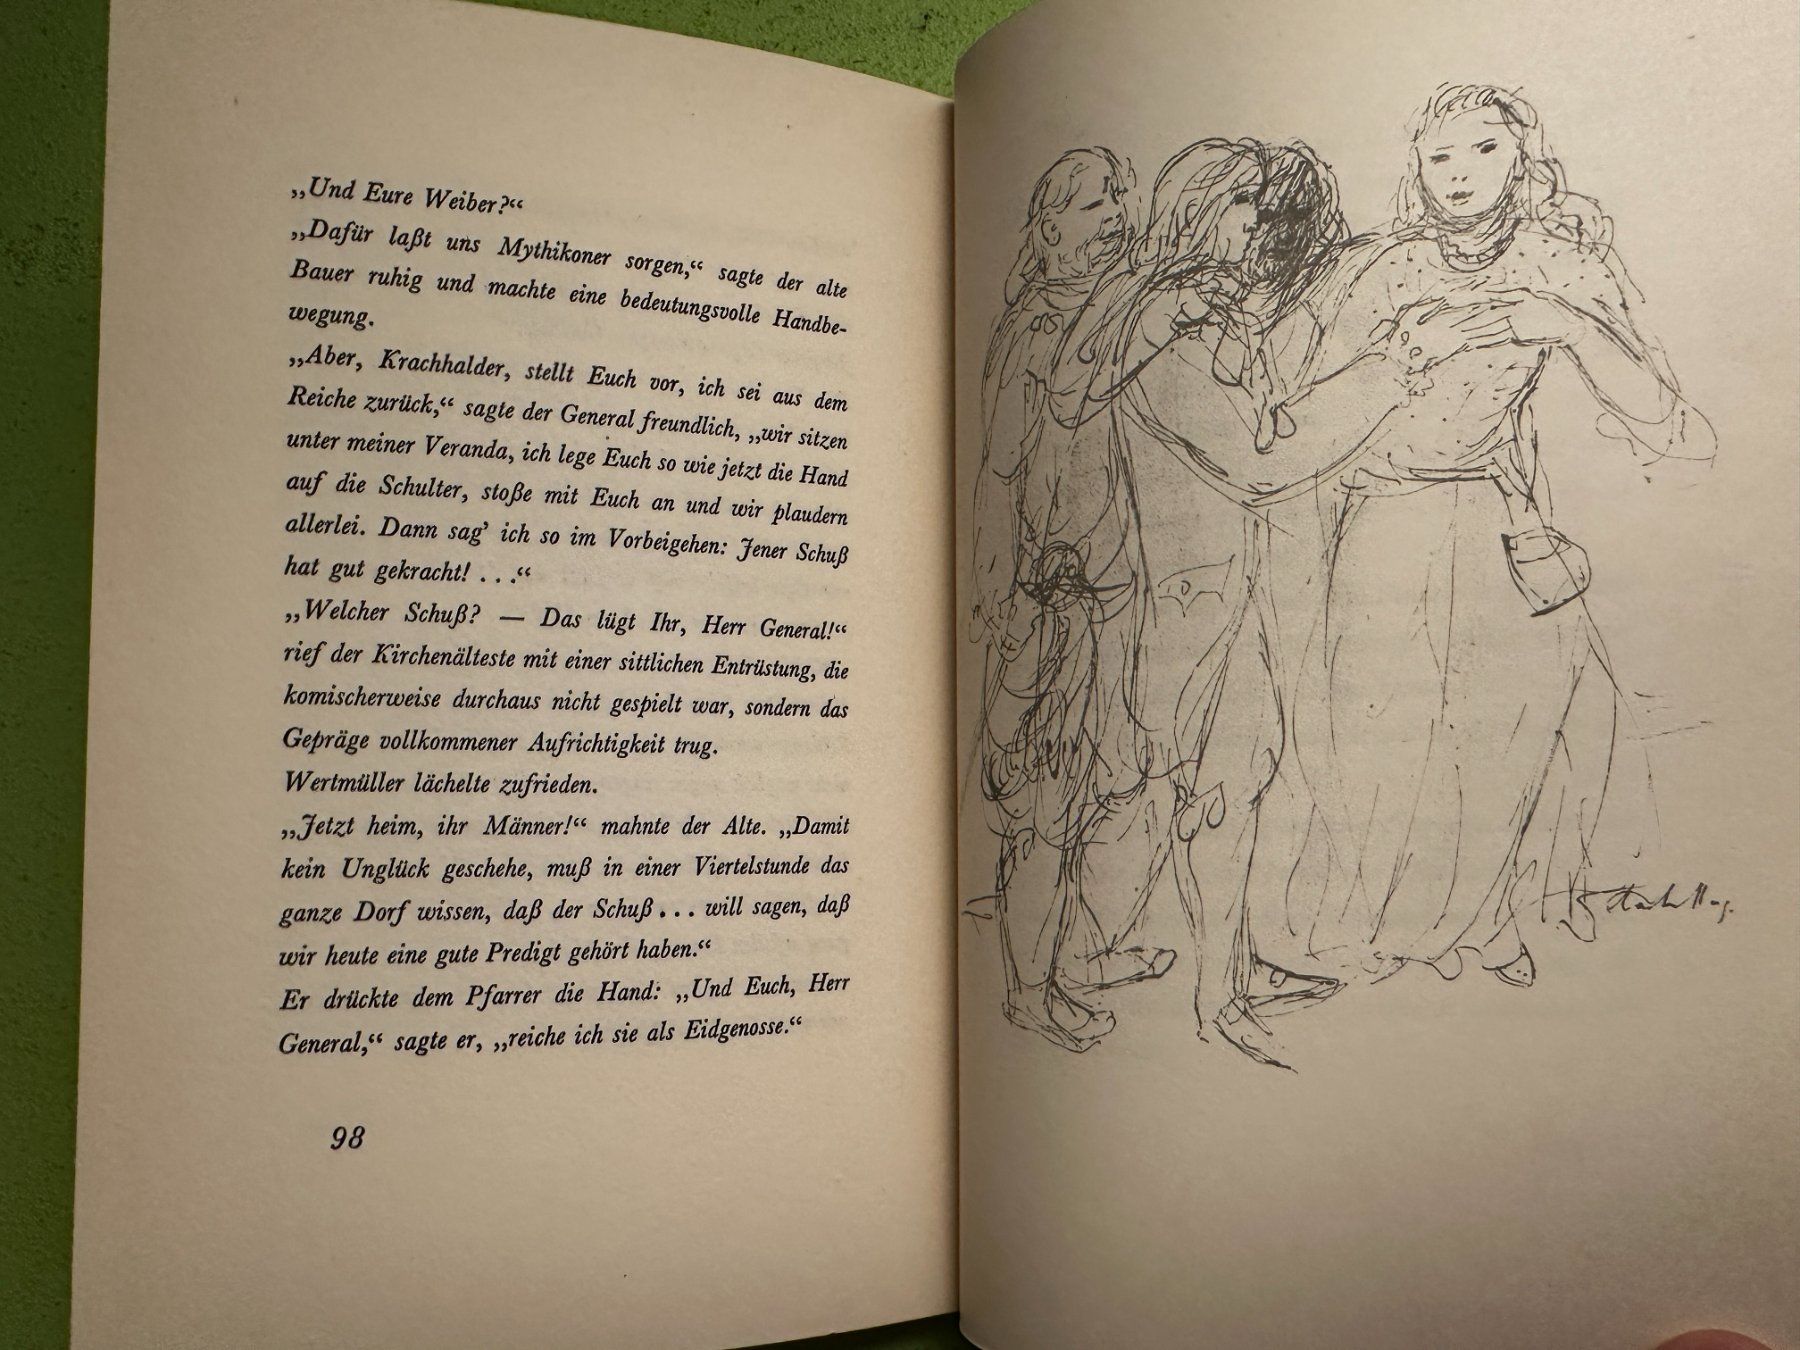 „Und Eure Weiber?“
„Dafür laßt uns Mythikoner sorgen,“ sagte der alte
Bauer ruhig und machte eine bedeutungsvolle Handbe-
wegung.
„Aber, Krachhalder, stellt Euch vor, ich sei aus dem
Reiche zurück,“ sagte der General freundlich, „wir sitzen
unter meiner Veranda, ich lege Euch so wie jetzt die Hand
auf die Schulter, stoße mit Euch an und wir plaudern
allerlei. Dann sag’ ich so im Vorbeigehen: Jener Schuß
hat gut gekracht! . . .“
„Welcher Schuß? — Das lügt Ihr, Herr General!“
rief der Kirchenälteste mit einer sittlichen Entrüstung, die
komischerweise durchaus nicht gespielt war, sondern das
Gepräge vollkommener Aufrichtigkeit trug.
Wertmüller lächelte zufrieden.
„Jetzt heim, ihr Männer!“ mahnte der Alte. „Damit
kein Unglück geschehe, muß in einer Viertelstunde das
ganze Dorf wissen, daß der Schuß . . . will sagen, daß
wir heute eine gute Predigt gehört haben.“
Er drückte dem Pfarrer die Hand: „Und Euch, Herr
General,“ sagte er, „reiche ich sie als Eidgenosse.“
98